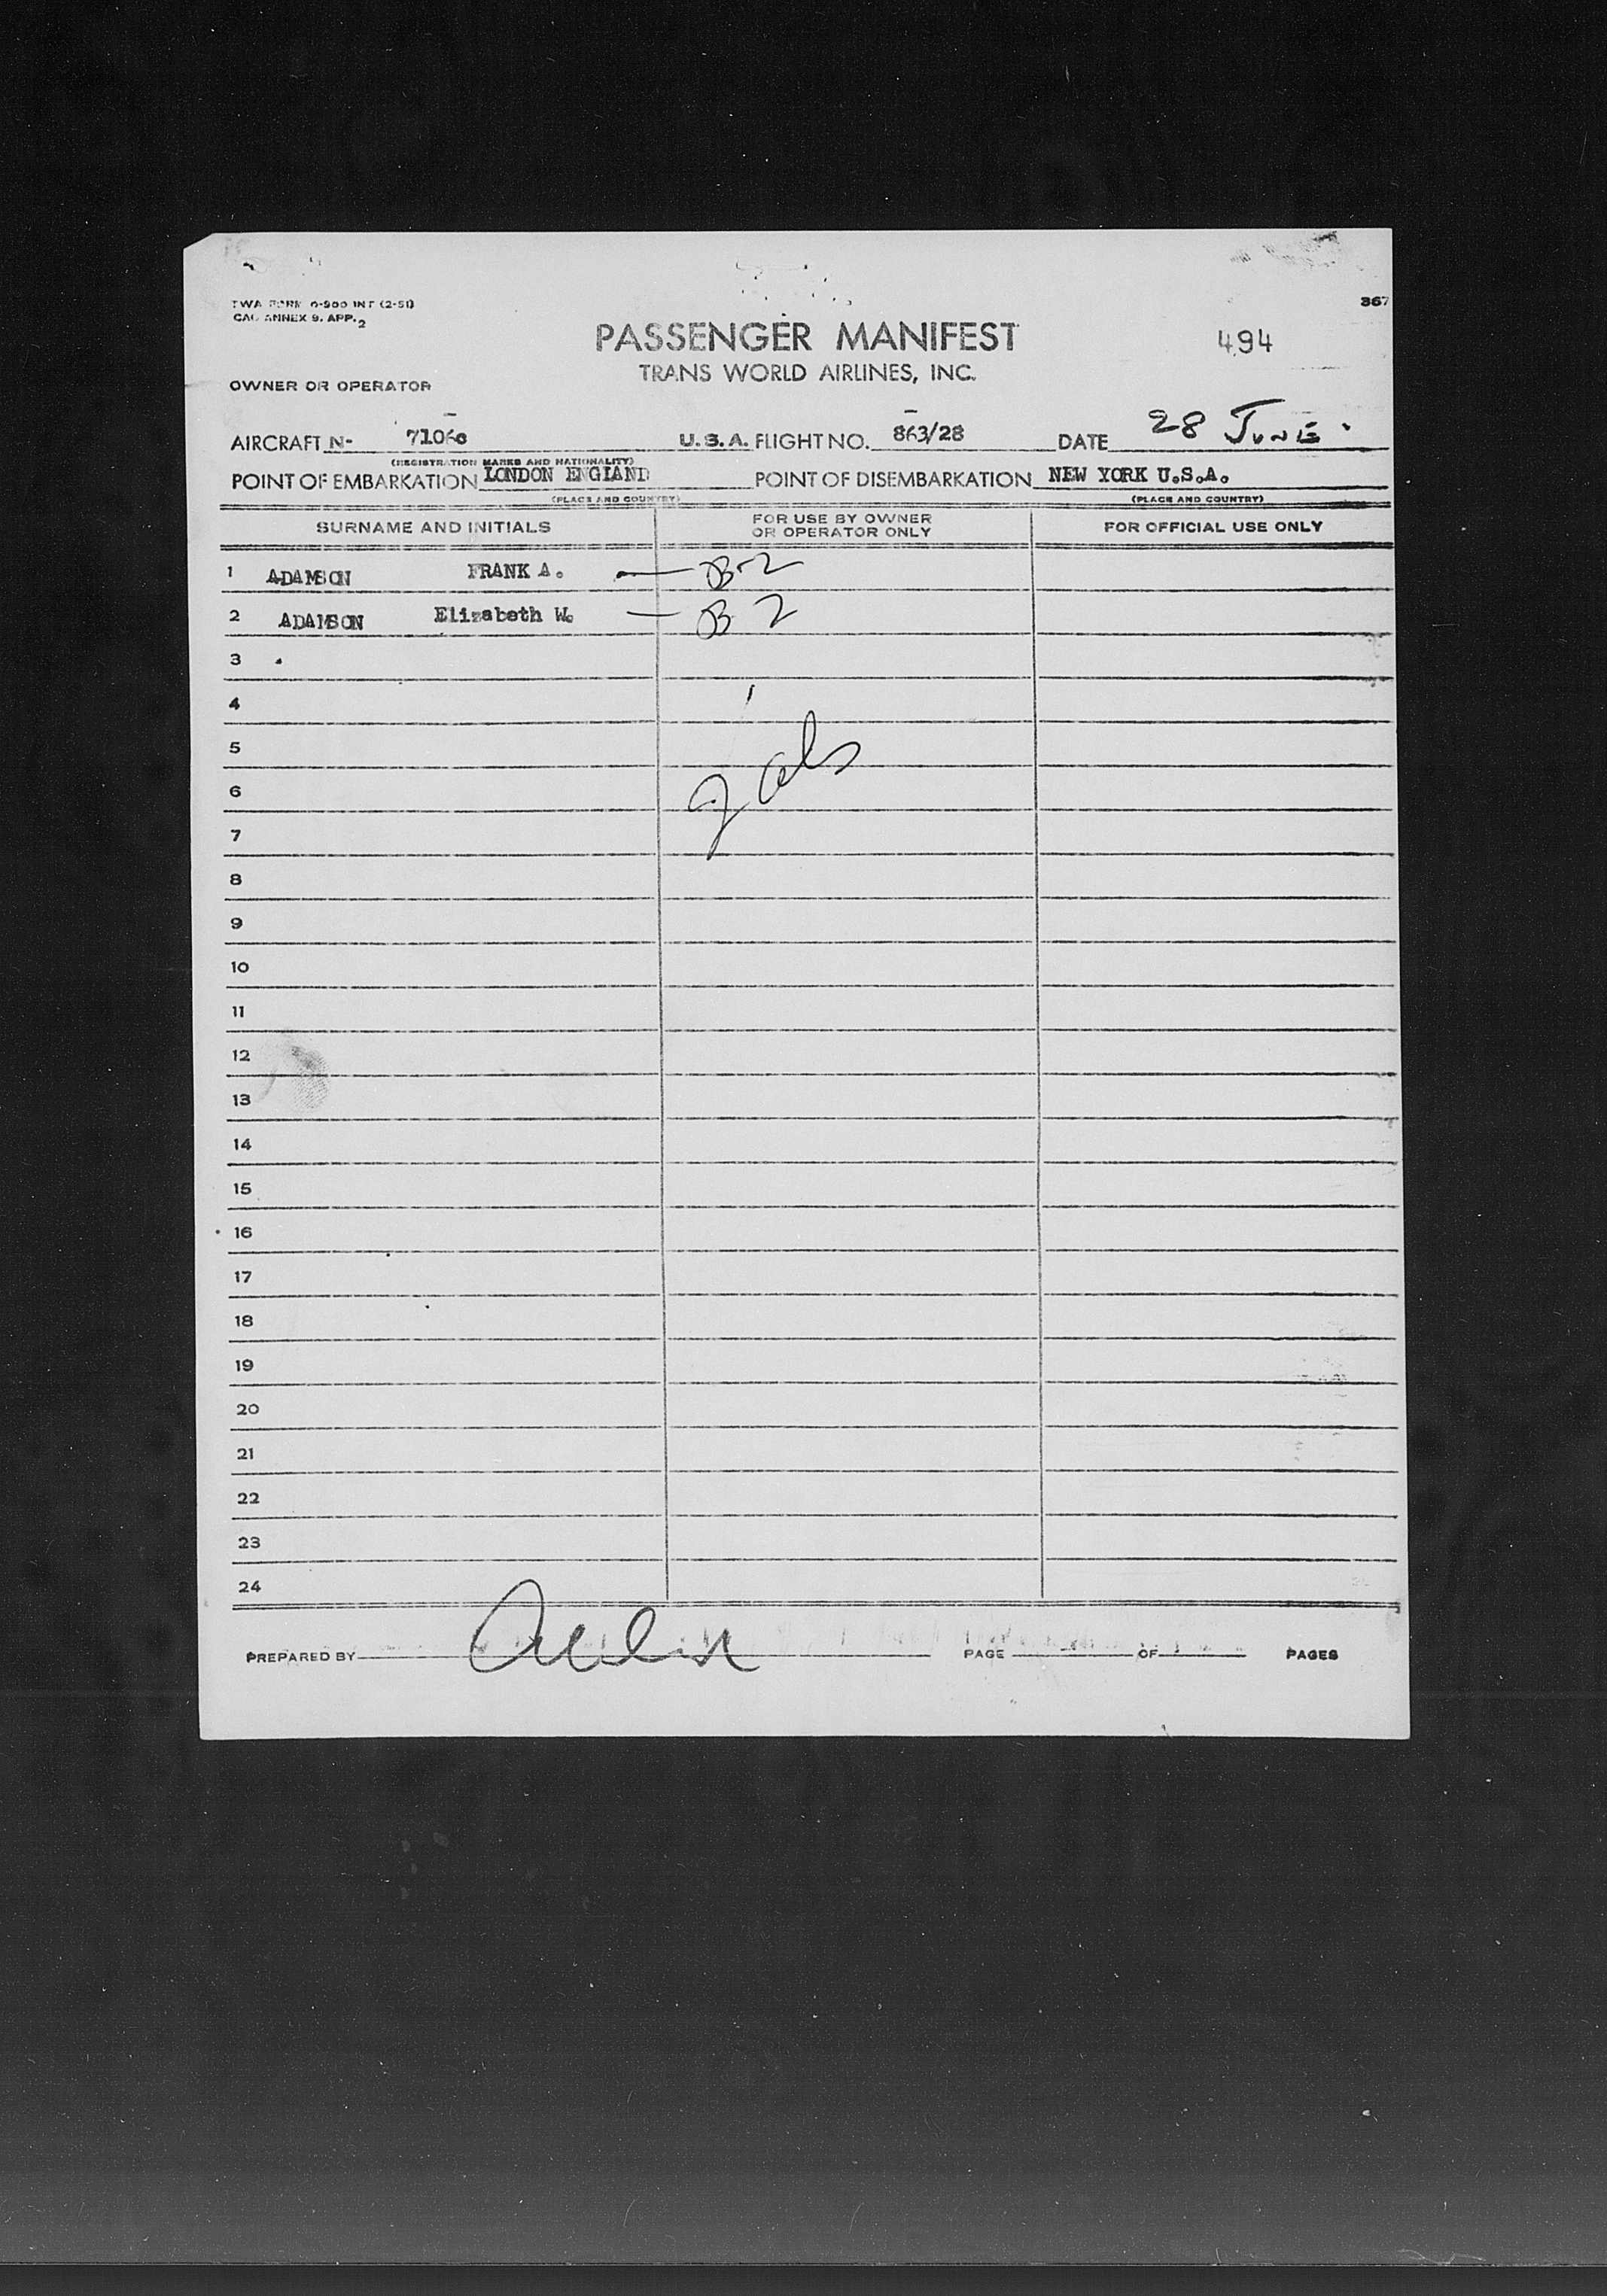 TWA FORM 0-900 INT (2-51)
CAO ANNEX 9, APP. 2
367
PASSENGER MANIFEST
494
TRANS WORLD AIRLINES, INC.
OWNER OR OPERATOR
AIRCRAFT N- U.S.A. FLIGHT NO. 863/28 DATE 28 JUNE
(REGISTRATION MARKS AND NATIONALITY)
POINT OF EMBARKATION LONDON ENGLAND POINT OF DISEMBARKATION NEW YORK U.S.A.
(PLACE AND COUNTRY) (PLACE AND COUNTRY)
SURNAME AND INITIALS FOR USE BY OWNER OR OPERATOR ONLY FOR OFFICIAL USE ONLY
1 ADAMSON FRANK A. — B-2
2 ADAMSON Elizabeth W. — B 2
3
4
5
6
7
8
9
10
11
12
13
14
15
16
17
18
19
20
21
22
23
24
PREPARED BY PAGE OF PAGES